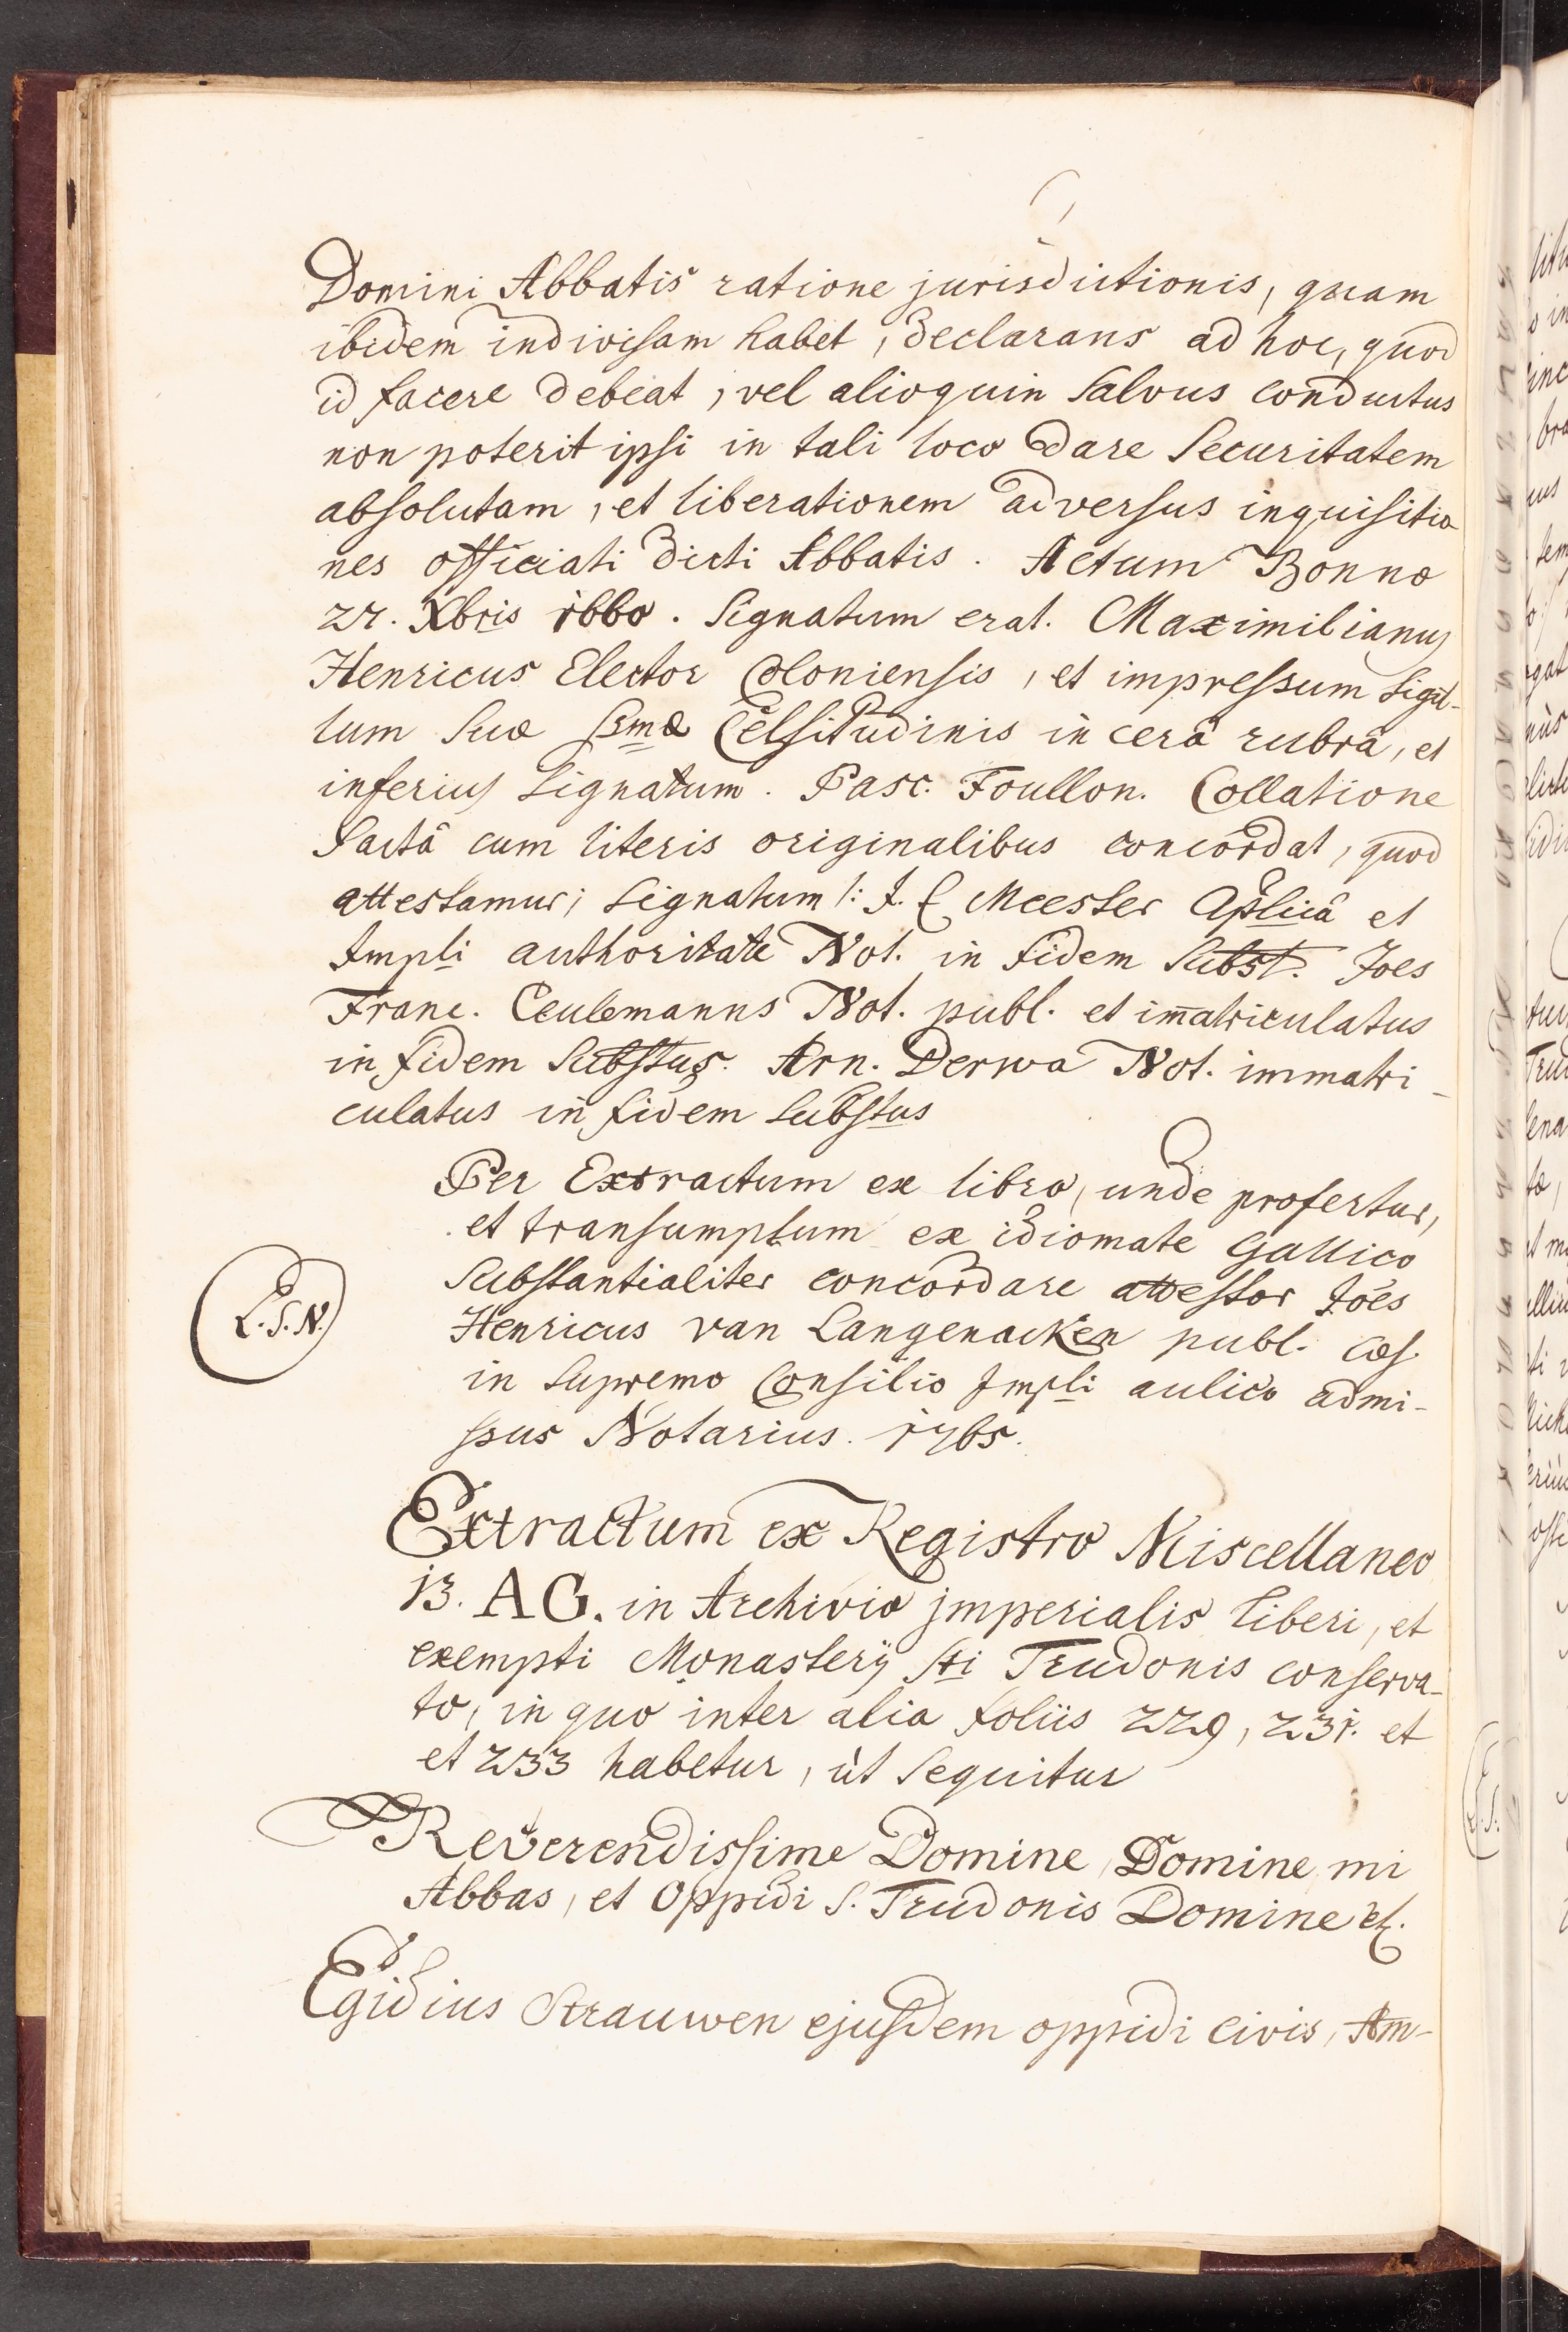 Domini Abbatis ratione jurisdictionis, quam
ibidem indivisam habet, declarans ad hoc, quod
id facere debeat, vel alioquin salvus conductus
non poterit ipsi in tali loco dare securitatem
absolutam, et liberationem adversus inquisitio
nes officiati dicti Abbatis. Actum Bonnæ
22. Xbris 1660. Signatum erat. Maximilianus
Henricus Elector Coloniensis, et impressum sigil-
lum suæ Ssmæ Celsitudinis in cerâ rubrâ, et
inferius signatum. Pasc. Foullon. Collatione
factâ cum literis originalibus concordat, quod
attestamur; signatum /: J. C Meester Aplicâ et
Impli authoritate Not. in fidem subst. Joes
Franc. Ceulemanns Not. publ. et im̄atriculatus
in fidem substus. Arn. Derwa Not. immatri-
culatus in fidem substus
Per Extractum ex libro, unde profertur,
et transumptum ex idiomate Gallico
substantialiter concordare attestor Joēs
Henricus van Langenacken publ. cæs.
in supremo Consilio Impli aulico admi-
ssus Notarius. 1765.
L.S.N.
Extractum ex Registro Miscellaneo
13. AG. in Archivio imperialis liberi, et
exempti Monasterij Sti Trudonis conserva-
to, in quo inter alia foliis 229, 231. et
et 233 habetur, ùt sequitur
Reverendissime Domine, Domine mi
Abbas, et Oppidi S. Trudonis Domine etc.
Egidius Strauwen ejusdem oppidi civis, Am-